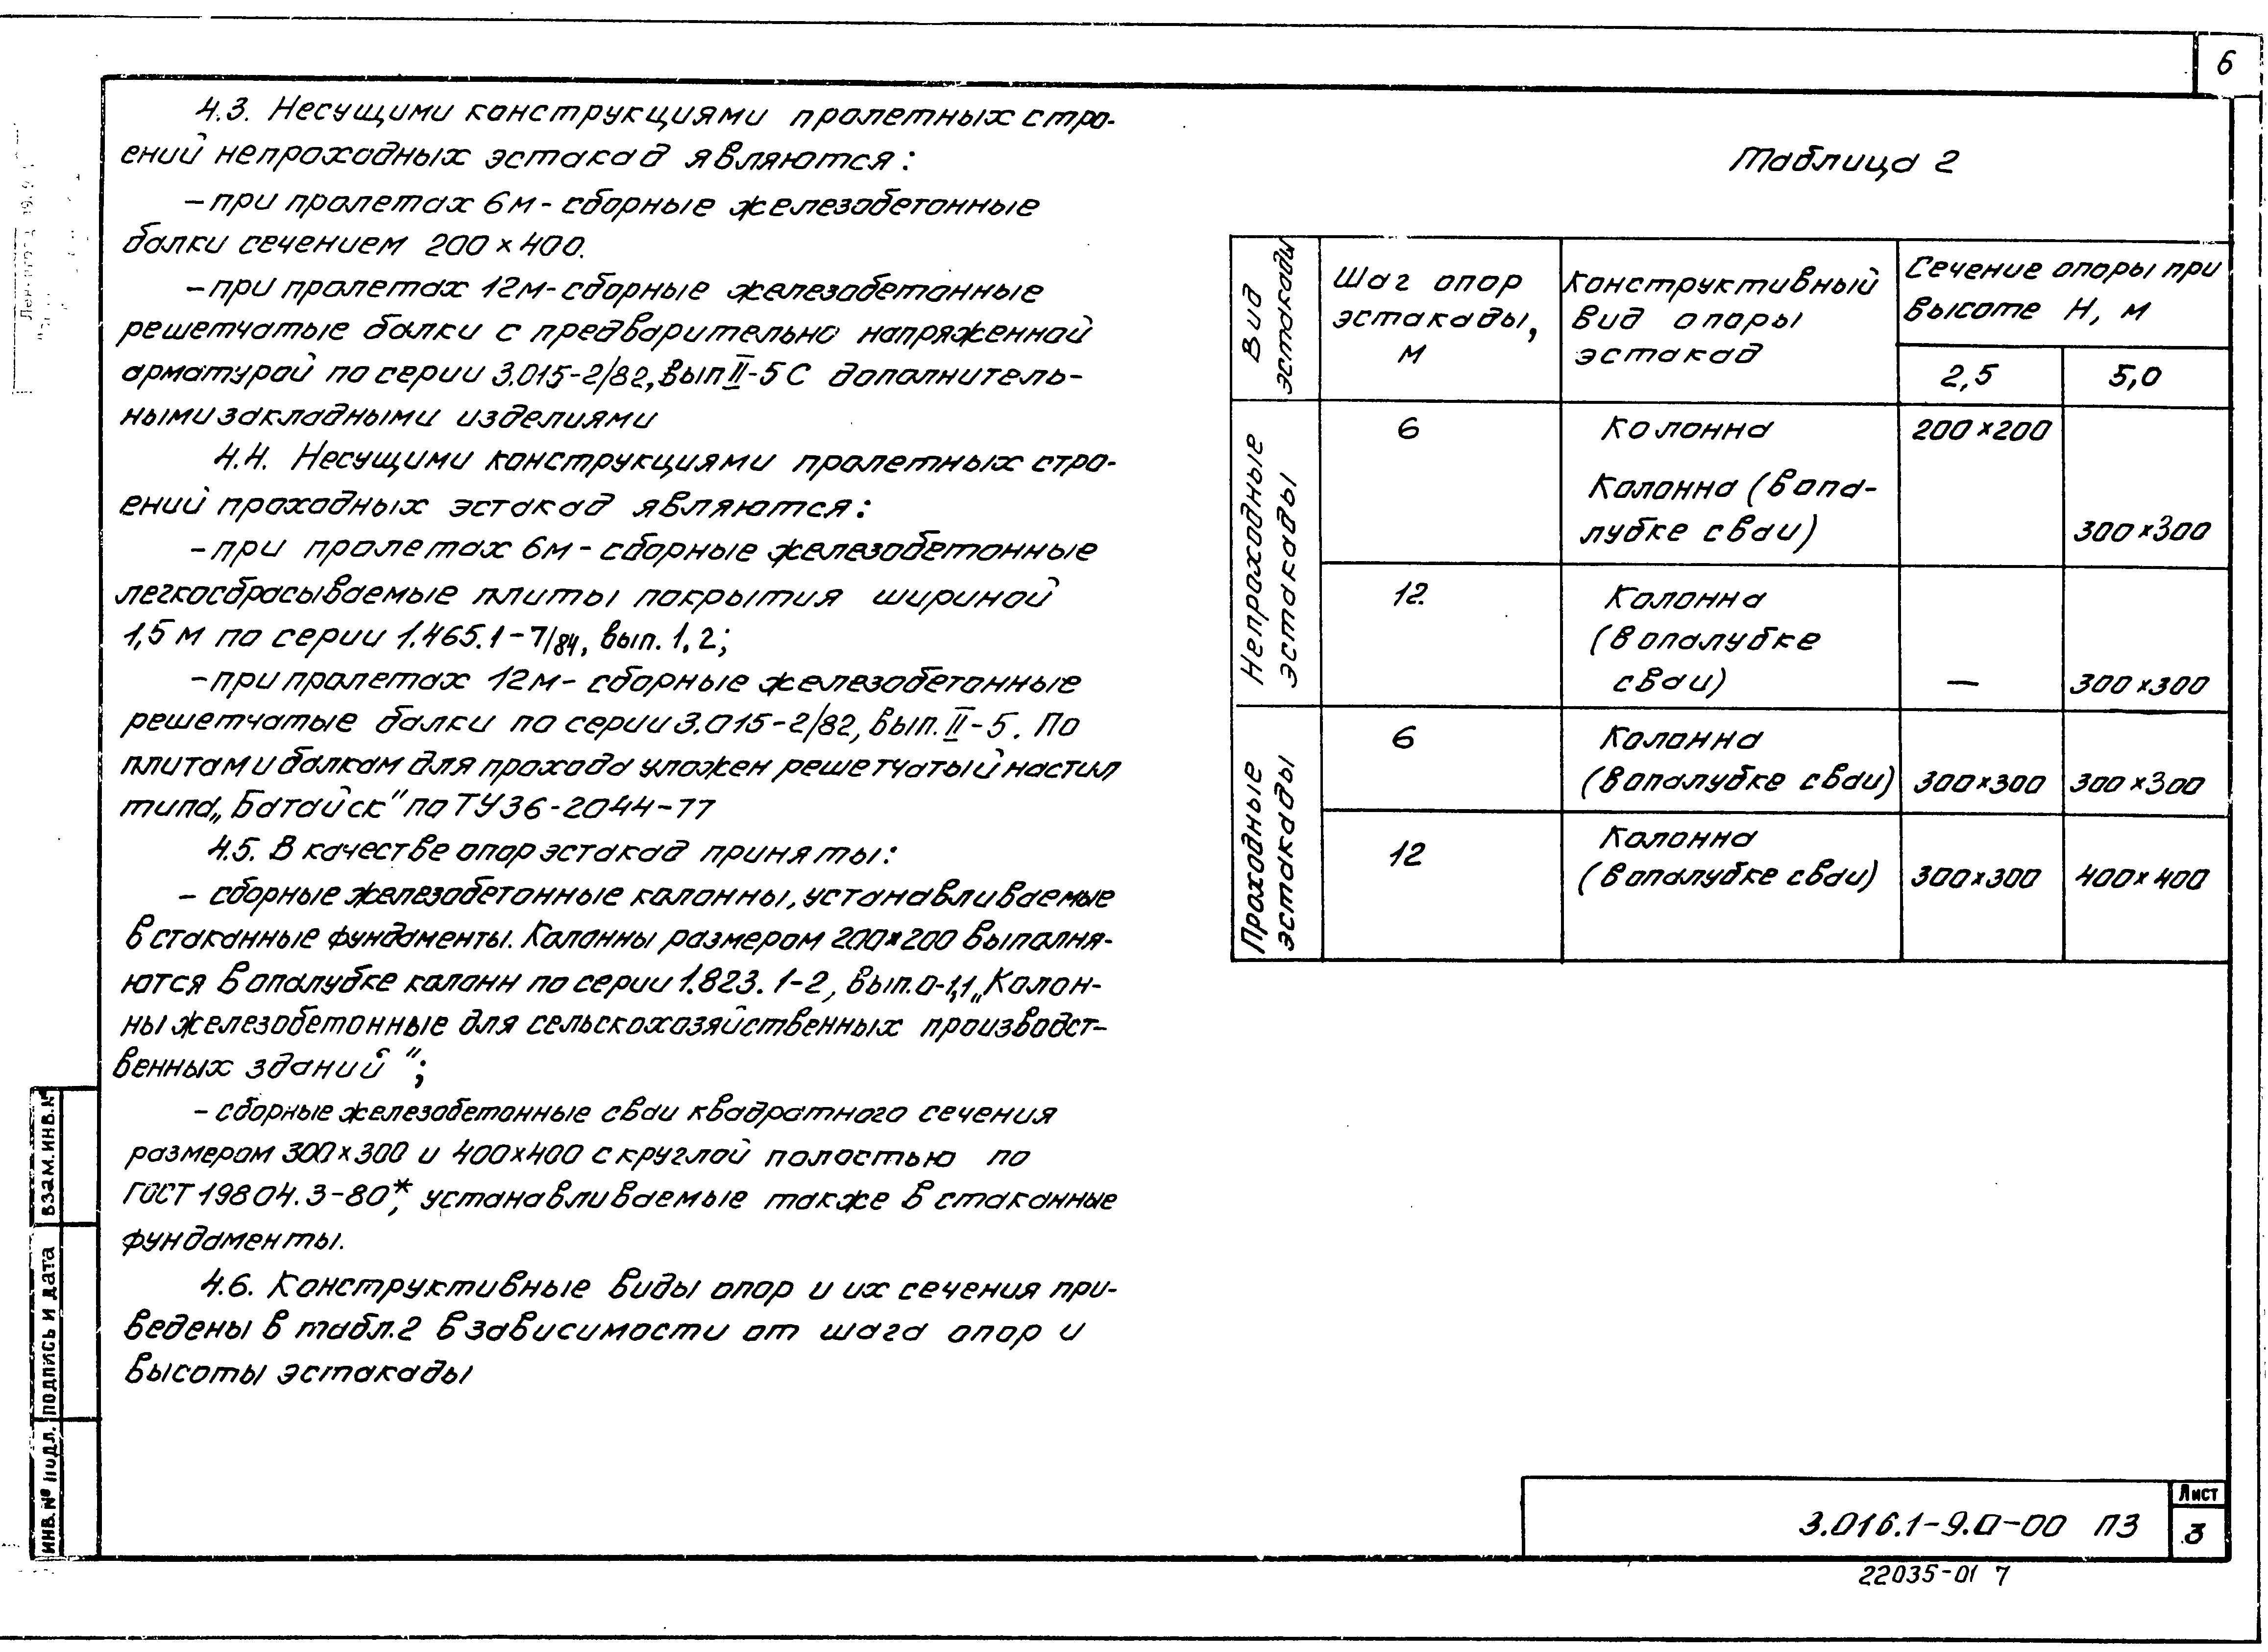 6
4.3. Несущими конструкциями пролетных стро-
ений непроходных эстакад являются:
- при пролетах 6м - сборные железобетонные
балки сечением 200 × 400.
- при пролетах 12м - сборные железобетонные
решетчатые балки с предварительно напряженной
арматурой по серии 3.015-2/82, вып II-5 С дополнитель-
ными закладными изделиями
4.4. Несущими конструкциями пролетных стро-
ений проходных эстакад являются:
- при пролетах 6м - сборные железобетонные
легкосбрасываемые плиты покрытия шириной
1,5 м по серии 1.465.1-7/84, вып. 1, 2;
- при пролетах 12м - сборные железобетонные
решетчатые балки по серии 3.015-2/82, вып. II-5. По
плитам и балкам для прохода уложен решетчатый настил
типа „Батайск" по ТУ 36-2044-77
4.5. В качестве опор эстакад приняты:
- сборные железобетонные колонны, устанавливаемые
в стаканные фундаменты. Колонны размером 200×200 выполня-
ются в опалубке колонн по серии 1.823.1-2, вып.0-1,1 „Колон-
ны железобетонные для сельскохозяйственных производст-
венных зданий";
- сборные железобетонные сваи квадратного сечения
размером 300×300 и 400×400 с круглой полостью по
ГОСТ 19804.3-80*, устанавливаемые также в стаканные
фундаменты.
4.6. Конструктивные виды опор и их сечения при-
ведены в табл.2 в зависимости от шага опор и
высоты эстакады
Таблица 2
Вид
эстакады
Шаг опор
эстакады,
м
Конструктивный
вид опоры
эстакад
Сечение опоры при
высоте Н, м
2,5 5,0
Непроходные
эстакады
6 Колонна 200×200
Колонна (в опа-
лубке сваи) 300×300
12. Колонна
(в опалубке
сваи) — 300×300
Проходные
эстакады
6 Колонна
(в опалубке сваи) 300×300 300×300
12 Колонна
(в опалубке сваи) 300×300 400×400
ИНВ. № подл. ПОДПИСЬ И ДАТА ВЗАМ. ИНВ. №
3.016.1-9.0-00 ПЗ
Лист
3
22035-01 7